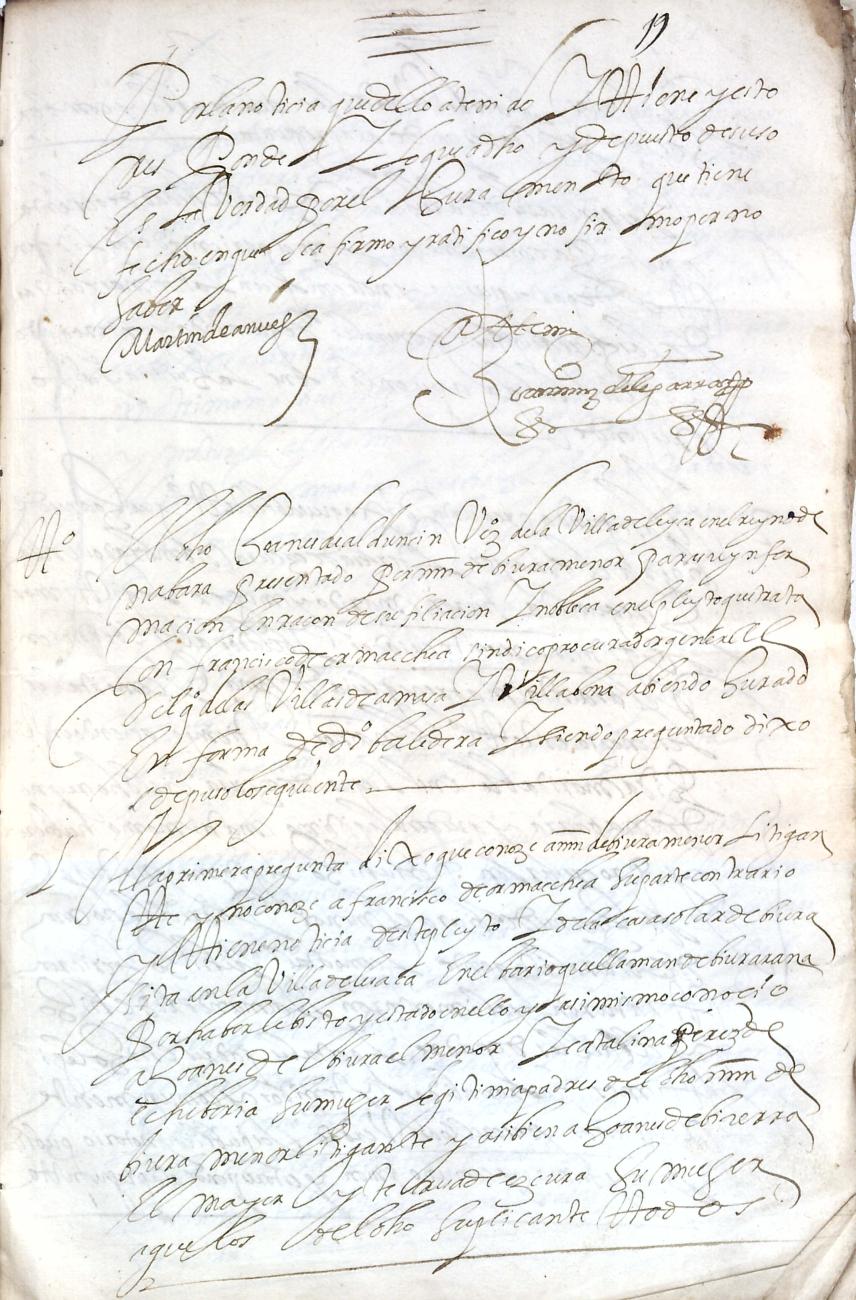 19
Por la noticia que dello a tenido Y ttiene y esto
rresponde Y lo que a dho y depuesto de suso
es la verdad por el jura mento que tiene
fecho en que se a firmo y ratifico y no fir mo por no
saber
Martin de anues
Ante mi
de la parra
tt.o
El dho Joanes de alduncin vz.o de la Villa de leyça en el reyno de
nabara presentado por mrn de biura menor para la ynfor
macion en raçon de su filiacion Y nobleça en el pleyto que trata
con francisco de ormaechea sindico procurador general
del q.o de las Villas de amasa Y Villabona abiendo jurado
en forma de d.o baledera Y siendo preguntado dixo
e depuso lo seguiente
1 A la primera pregunta dixo que conoze a mrn de biura menor litigan
tte y no conoze a francisco de ormaechea su parte contrario
y ttiene noticia deste pleyto Y de la casa solar de biura
sita en la Villa de leaça en el bario que llaman de biurarana
por haberle bisto y estado en ello y asi mismo conocio
a Joanes de biura el menor Y catalina perez de
echeberia su muger legitima padres del dho mrn de
biura menor litigante y asibien a Joanes de
el mayor y de su muger
aguelos del dho suplicante ttodos